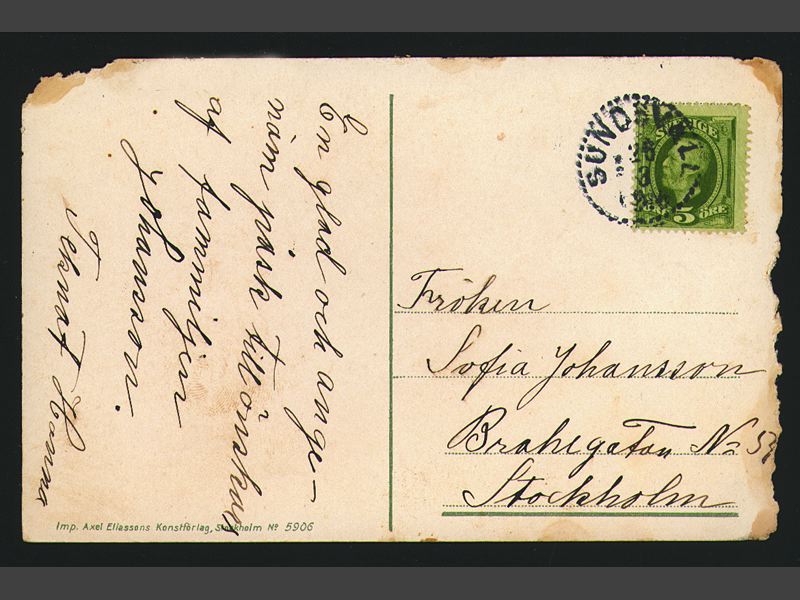 En glad och ange-
näm påsk tillönskas
af fammiljen
Johansson.
Hanna
SUNDSVALL
SVERIGE
5 ÖRE
Fröken
Sofia Johansson
Brahegatan No
Stockholm
Imp. Axel Eliassons Konstförlag, Stockholm No 5906